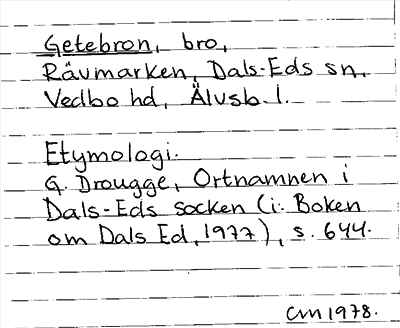 Getebron, bro,
Rävmarken, Dals-Eds sn.
Vedbo hd, Älvsb. l.
Etymologi.
G. Drougge, Ortnamnen i
Dals-Eds socken (i: Boken
om Dals Ed, 1977), s. 644.
CM 1978.